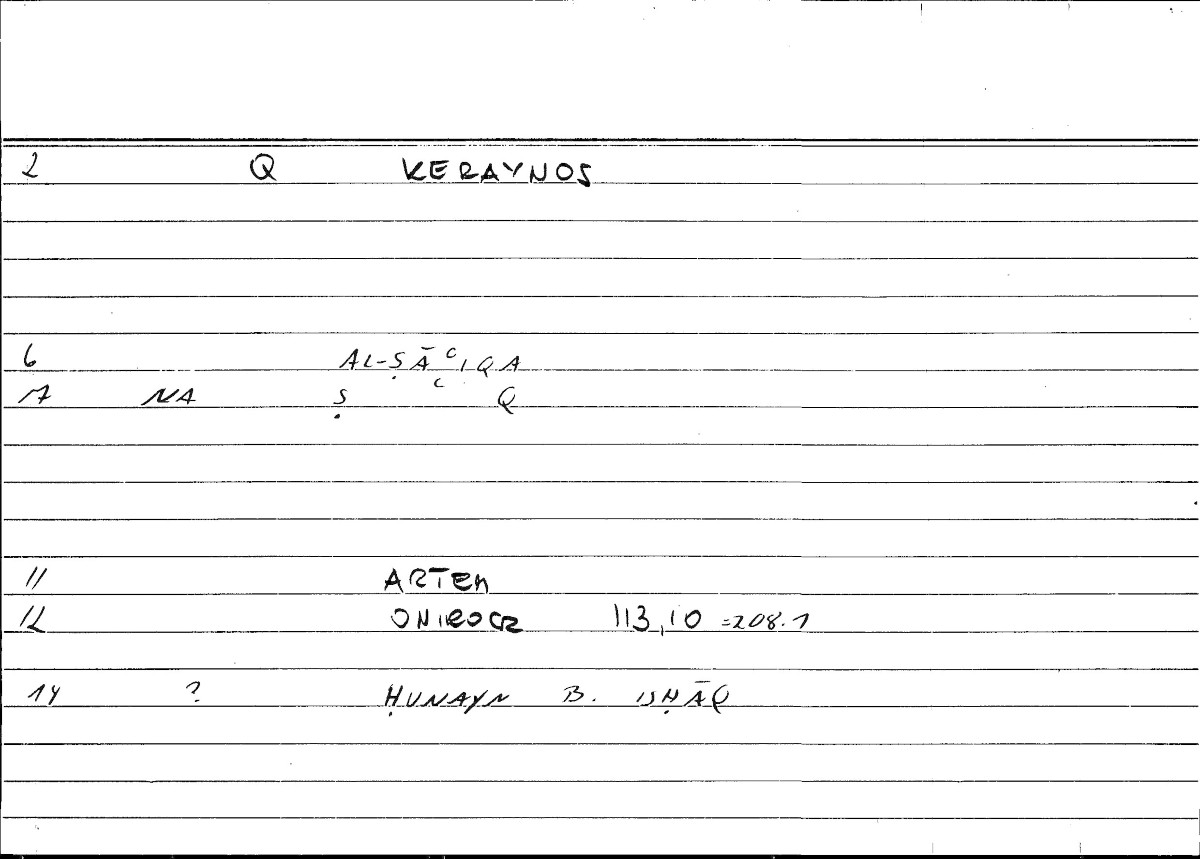 2 Q KERAYNOS
6 AL-ṢĀʿIQA
7 NA Ṣ ʿ Q
11 ARTEM
12 ONIROCR 113,10 =208.1
14 ? ḤUNAYN B. ISḤĀQ